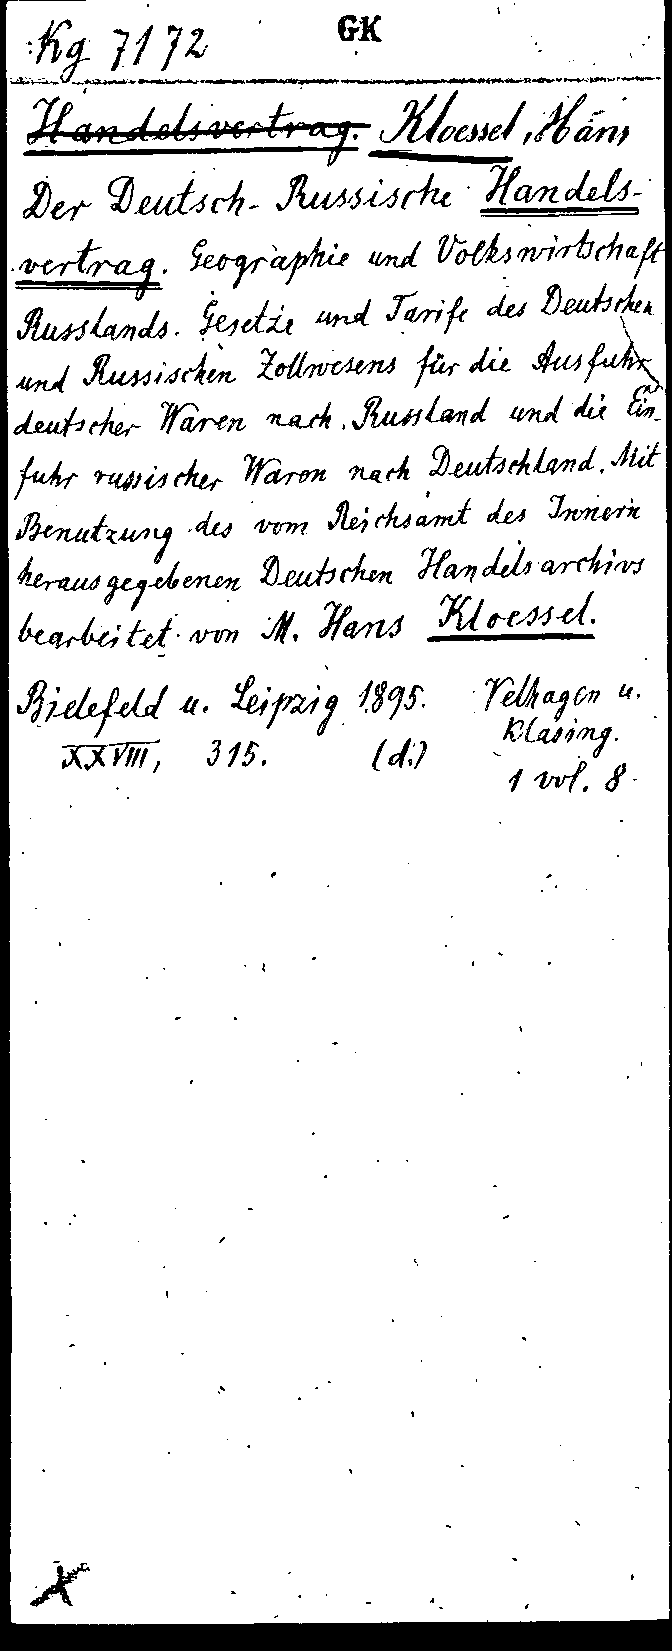 Kg 7172
GK
Handelsvertrag. Kloessel, Hans
Der Deutsch-Russische Handels-
vertrag. Geographie und Volkswirtschaft
Russlands. Gesetze und Tarife des Deutschen
und Russischen Zollwesens für die Ausfuhr
deutscher Waren nach Russland und die Ein-
fuhr russischer Waren nach Deutschland. Mit
Benutzung des vom Reichsamt des Innern
herausgegebenen Deutschen Handelsarchivs
bearbeitet von M. Hans Kloessel.
Bielefeld u. Leipzig 1895. Velhagen u.
Klasing.
XXVIII, 315. (d.)
1 vol. 8